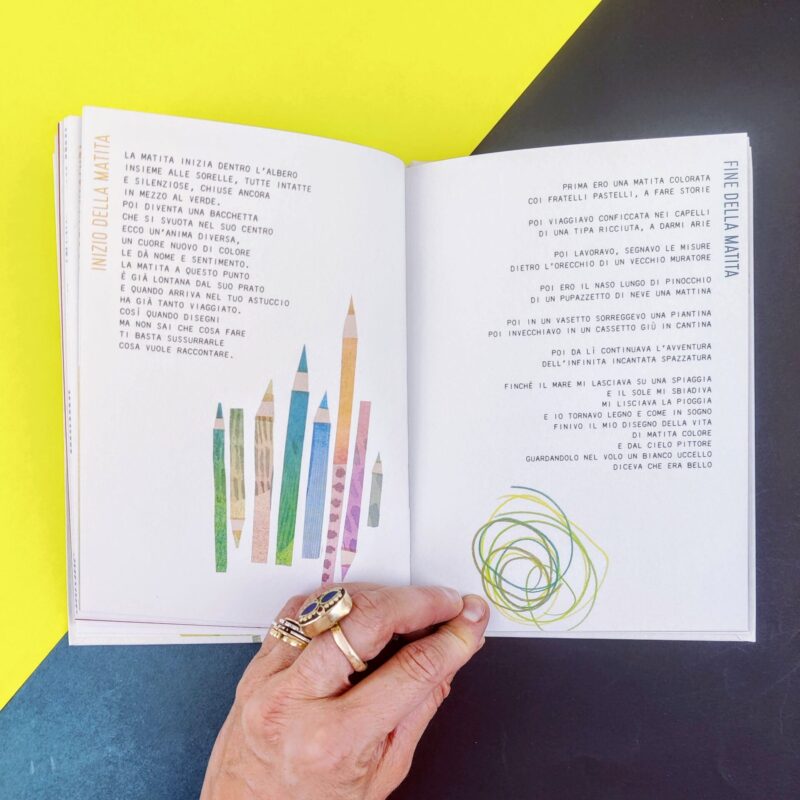 INIZIO DELLA MATITA
LA MATITA INIZIA DENTRO L'ALBERO
INSIEME ALLE SORELLE, TUTTE INTATTE
E SILENZIOSE, CHIUSE ANCORA
IN MEZZO AL VERDE.
POI DIVENTA UNA BACCHETTA
CHE SI SVUOTA NEL SUO CENTRO
ECCO UN'ANIMA DIVERSA,
UN CUORE NUOVO DI COLORE
LE DÀ NOME E SENTIMENTO.
LA MATITA A QUESTO PUNTO
È GIÀ LONTANA DAL SUO PRATO
E QUANDO ARRIVA NEL TUO ASTUCCIO
HA GIÀ TANTO VIAGGIATO.
COSÌ QUANDO DISEGNI
MA NON SAI CHE COSA FARE
TI BASTA SUSSURRARLE
COSA VUOLE RACCONTARE.
FINE DELLA MATITA
PRIMA ERO UNA MATITA COLORATA
COI FRATELLI PASTELLI, A FARE STORIE
POI VIAGGIAVO CONFICCATA NEI CAPELLI
DI UNA TIPA RICCIUTA, A DARMI ARIE
POI LAVORAVO, SEGNAVO LE MISURE
DIETRO L'ORECCHIO DI UN VECCHIO MURATORE
POI ERO IL NASO LUNGO DI PINOCCHIO
DI UN PUPAZZETTO DI NEVE UNA MATTINA
POI IN UN VASETTO SORREGGEVO UNA PIANTINA
POI INVECCHIAVO IN UN CASSETTO GIÙ IN CANTINA
POI DA LÌ CONTINUAVA L'AVVENTURA
DELL'INFINITA INCANTATA SPAZZATURA
FINCHÉ IL MARE MI LASCIAVA SU UNA SPIAGGIA
E IL SOLE MI SBIADIVA
MI LISCIAVA LA PIOGGIA
E IO TORNAVO LEGNO E COME IN SOGNO
FINIVO IL MIO DISEGNO DELLA VITA
DI MATITA COLORE
E DAL CIELO PITTORE
GUARDANDOLO NEL VOLO UN BIANCO UCCELLO
DICEVA CHE ERA BELLO